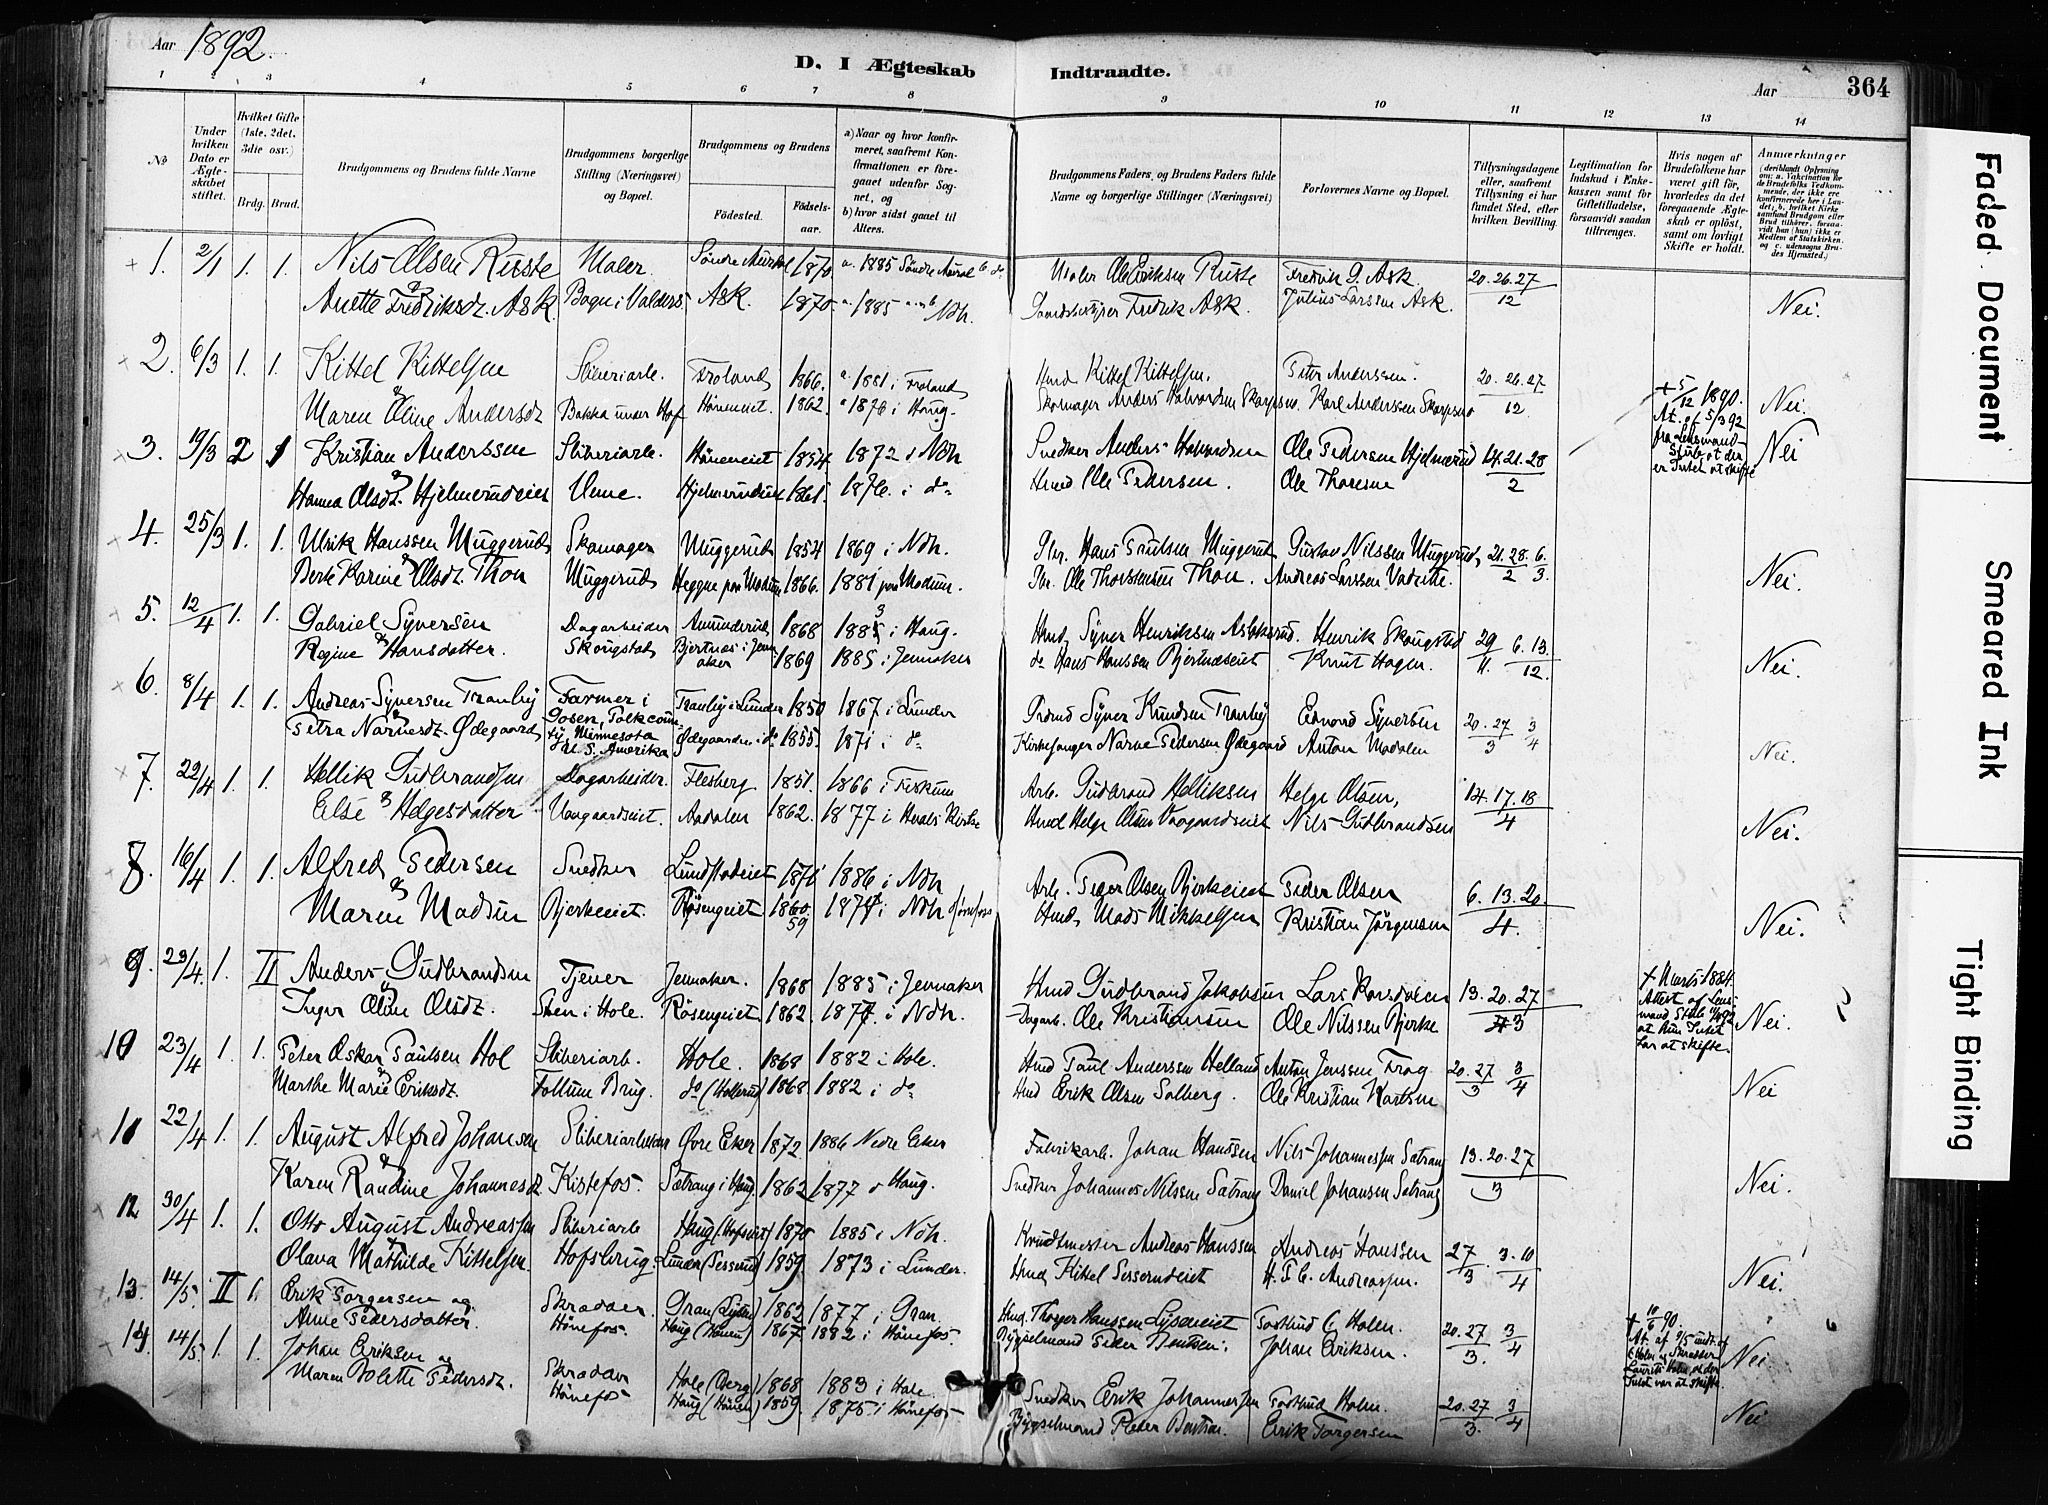 Aar 1892.
D. I Ægteskab Indtraadte.
Aar 364
1 2 3 4 5 6 7 8 9 10 11 12 13 14
No
Under hvilken Dato er Ægteskabet stiftet.
Hvilket Gifte (1ste, 2det, 3die osv.)
Brdg. Brud.
Brudgommens og Brudens fulde Navne
Brudgommens borgerlige Stilling (Næringsvei) og Bopæl.
Brudgommens og Brudens
Födested. Födselsaar.
a) Naar og hvor konfirmeret, saafremt Konfirmationen er foregaaet udenfor Sognet, og
b) hvor sidst gaaet til Alters.
Brudgommens Faders og Brudens Faders fulde Navne og borgerlige Stillinger (Næringsvei)
Forlovernes Navne og Bopæl.
Tillysningsdagene eller, saafremt Tillysning ei har fundet Sted, efter hvilken Bevilling.
Legitimation for Indskud i Enkekassen samt for Giftetilladelse, forsaavidt saadan tiltrænges.
Hvis nogen af Brudefolkene har været gift för, hvorledes da det foregaaende Ægteskab er oplöst, samt om lovligt Skifte er holdt.
Anmærkninger
1. 2/1 1. 1. Nils Olsen Ruste Maler. Söndre Aurdal 1870. a. 1885 Söndre Aurdal Maler Ole Eriksen Ruste Fredrik G. Ask 20. 26. 27
& Anette Fredriksdt. Ask. Bagn i Valders Ask. 1870. a. 1885 Ndh. Fredrik Ask. Julius Larssen Ask. 12 Nei.
2. 6/3 1. 1. Kittel Kittelsen Sliberiarb. Froland 1866. a. 1881 i Froland Hmd Kittel Kittelsen. Peter Anderssen. 20. 26. 27 + 5/12 1890.
& Maren Oline Andersdt Bakka under Hof Höneneiet. 1862. a. 1876 i Haug. Skomager Anders Halvordsen Karl Anderssen 12. At. af 5/3 92 Nei.
3. 19/3 2 1 Kristian Anderssen Sliberiarb. Höneneiet 1854 1872 i Ndh Snedker Anders Halvordsen Ole Pedersen Hjelmerud 14. 21. 28 fra Lensmand Stub at der er Intet at skifte Nei
& Hanna Olsdt. Hjelmerudeiet Veme. 1861 1876. i do Hmd. Ole Pedersen. Ole Thoresen 2
4. 25/3 1. 1. Ulrik Hanssen Muggerud Skomager Muggerud 1854 1869 i Ndh. Gbr. Hans Paulsen Muggerud Gustav Nilssen Muggerud 21. 28. 6
& Berte Karine Olsdt. Thon Muggerud Heggen paa Modum 1866. 1881 paa Modum. Gbr. Ole Thorstensen Thon. Andreas Larssen 2 3. Nei.
5. 12/4 1. 1. Gabriel Syversen Dagarbeider 1868 1883 i Haug. Hmd Syver Henriksen Henrik Skougstad 29 6. 13.
& Regine Hansdatter. Skougstad Bjertnæs i Jevnaker 1869 1885 i Jevnaker do Hans Hanssen Bjertnæseiet Knut Hagen. 11. 12. Nei.
6. 8/4 1. 1. Andreas Syversen Tranby Farmer i Tranby i Lunder 1850 1867 i Lunder Syver Knudsen Tranby Edvard Syversen 20. 27 3
& Petra Narvesdt. Ødegaard Posen, Polkcounty, Minnesota U. S. Amerika Ødegaarden i do 1855. 1871 i do Kirkesanger Narve Pedersen Ødegaard Anton Modalen 3 4 Nei.
7. 22/4 1. 1. Hellik Gudbrandsen Dagarbeider. Flesberg 1851. 1866 i Fiskum Arb. Gudbrand Helliksen Helge Olsen, 14. 17. 18
& Else Helgesdatter Vaagaardseiet. Aadalen 1862. 1877 i Hvals Kirke Hmd Helge Olsen Vaagaardseiet Nils Gudbrandsen 4 Nei.
8. 16/4 1. 1. Alfred Pedersen Snedker Lundstadeiet 1871 1886 i Ndh Arb. Peder Olsen Bjerkeeiet Peder Olsen 6. 13. 20.
& Maren Madsen Bjerkeeiet. Rösengeiet 1860 59 1874 i Ndh Hönefos Hmd. Mads Mikkelsen Kristian Jörgensen 4. Nei.
9. 23/4. 1. II Anders Gudbrandsen Tjener Jevnaker. 1868 1885 i Jevnaker Hmd Gudbrand Jakobsen Lars 13. 20. 27 + Marts 1884. Attest af Lensmand Stub at hun Intet har at skifte.
& Inger Oline Olsdt. Sten i Hole. Rösengeiet 1862. 1877. i Ndh. Dagarb. Ole Kristiansen Ole Nilssen Bjerke 3 Nei.
10 23/4 1. 1. Peter Oskar Paulsen Hol Sliberiarb. Hole. 1868 1882 i Hole. Hmd Paul Anderssen Helland Anton Jenssen Frog 20. 27 3
& Marthe Marie Eriksdt. Follum Brug. do (Hollerud) 1868. 1882 i do Hmd Erik Olsen Solberg. Ole Kristian Karlsen 3 4 Nei
11 22/4 1. 1. August Alfred Johansen Sliberiarbeider Øvre Eker 1872. 1886 Nedre Eker Fabrikarb. Johan Hanssen Nils Johannessen Sætrang 13. 20. 27
& Karen Randine Johannesdt. Kistefos. Sætrang i Haug. 1862 1877 i Haug. Snedker Johannes Nilssen Sætrang Daniel Johansen Sætrang 3 Nei.
12 30/4 1. 1. Otto August Andreassen Sliberiarb Haug (Hofseiet) 1870 1885 i Ndh. Krudtmester Andreas Hanssen Andreas Hanssen 27 3. 10
& Olava Mathilde Kittelsen Hofsbrug. Lunder (Sesserud) 1859. 1873 i Lunder. Hmd Kittel Sesserudeiet H. P. C. Andreassen. 3 4 Nei.
13. 14/5. II 1. Erik Torgersen og Skrædder. Gran 1862 1877 i Gran Hmd. Thorger Hanssen Lyseneiet Gorthud C Holm. 20. 27 3 + 10/6 90.
Anne Pedersdatter. Hönefos. Haug (Hönen) 1867 1882 i Hönefos Bygselmand Peder Bentsen. Johan Eriksen. 3. 4
14. 14/5. 1. 1. Johan Eriksen og Skrædder Hole (Berg) 1868 1883 i Hole. Snedker Erik Johannessen Gorthud Holm. 20. 27 3
Maren Bolette Pedersdt. Hönefos Haug (Hönen) 1859. 1875 i Hönefos Bygselmand Peder Bentsen. Erik Torgersen 3. 4 Nei
Faded Document
Smeared Ink
Tight Binding